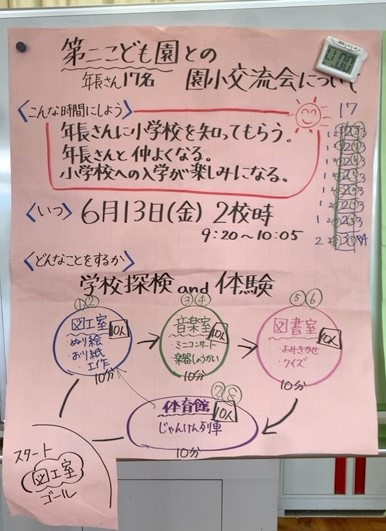 第二こども園との
年長さん17名 園小交流会について
<こんな時間にしよう>
年長さんに小学校を知ってもらう。
年長さんと仲よくなる。
小学校への入学が楽しみになる。
17
<いつ> 6月13日(金) 2校時
9:20~10:05
<どんなことをするか>
学校探検 and 体験
①②
図工室 10人
・ぬり絵
・おり紙
・工作
10分
③④
音楽室 10人
・ミニコンサート
・楽器しょうかい
10分
⑤⑥
図書室 10人
・よみきかせ
・クイズ
10分
⑦⑧
体育館 10人
じゃんけん列車
10分
スタート
図工室
ゴール